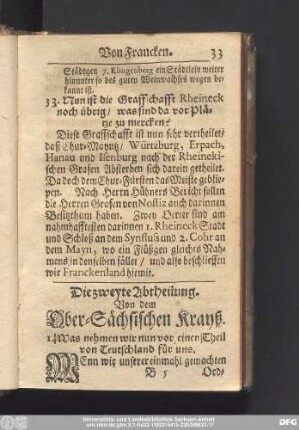 Von Francken. 33
Städtgen 7. Klingenberg ein Städtlein weiter
hinunter so des guten Weinwachses wegen be-
kannt ist.
33. Nun ist die Graffschafft Rheineck
noch übrig / was sind da vor Plä-
tze zu mercken?
Diese Graffschafft ist nun sehr vertheilet/
daß Chur-Mayntz / Würtzburg, Erpach,
Hanau und Isenburg nach der Rheinecki-
schen Grafen Absterben sich darein getheilet.
Da doch dem Chur-Fürsten das Meiste geblie-
ben. Nach Herrn Hübners Bericht sollen
die Herren Grafen von Nostiz auch darinnen
Besitzthum haben. Zwey Oerter sind am
nahmhafftesten darinnen 1. Rheineck Stadt
und Schloß an dem Synfluß und 2. Cohr an
dem Mayn, wo ein Flüßgen gleiches Nah-
mens in denselben fället / und also beschliessen
wir Franckenland hiemit.
Die zweyte Abtheilung.
Von dem
Ober-Sächsischen Krayß.
1. Was nehmen wir nun vor einen Theil
von Teutschland für uns.
Wenn wir unserer einmahl gemachten
B 5 Ord-
Universitäts- und Landesbibliothek Sachsen-Anhalt
DFG